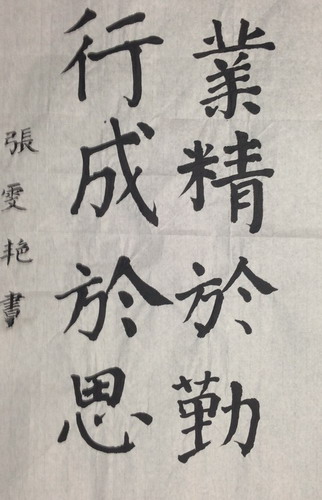 業精於勤
行成於思
張雯艳書